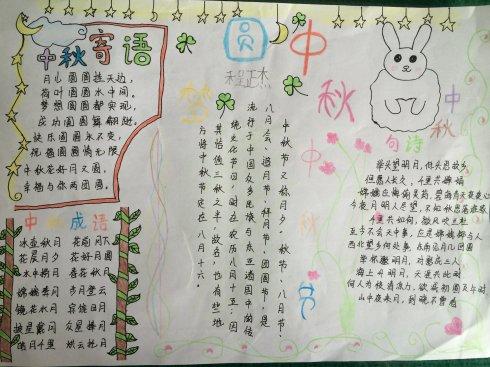 中秋寄语
月儿圆圆挂天边,
荷叶圆圆水中间。
梦想圆圆都实现,
成功圆圆舞翩跹。
快乐圆圆永不变,
祝福圆圆情无限
中秋花好月又圆,
幸福与你两团圆。
中秋成语
冰壶秋月 花前月下
花晨月夕 花好月圆
水中捞月 春花秋月
嫦娥奔月 步月登云
镜花水月 日月
披星戴月 众星捧月
皓月千里 烘云托月
圆中
梦
秋
中秋节又称月夕、秋节、八月节、
八月会、追月节、拜月节、团圆节,是
流行于中国众多民族与东亚诸国中的传
统文化节日,时在农历八月十五;因
其恰值三秋之半,故名,也有些地
方将中秋节定在八月十六。
中
秋
句诗
举头望明月,低头思故乡
但愿人长久,千里共婵娟
今夜月明人尽望,不知秋思落谁家
西北望乡何处是,东南见月几回圆
举杯邀明月,对影成三人
海上升明月,天涯共此时